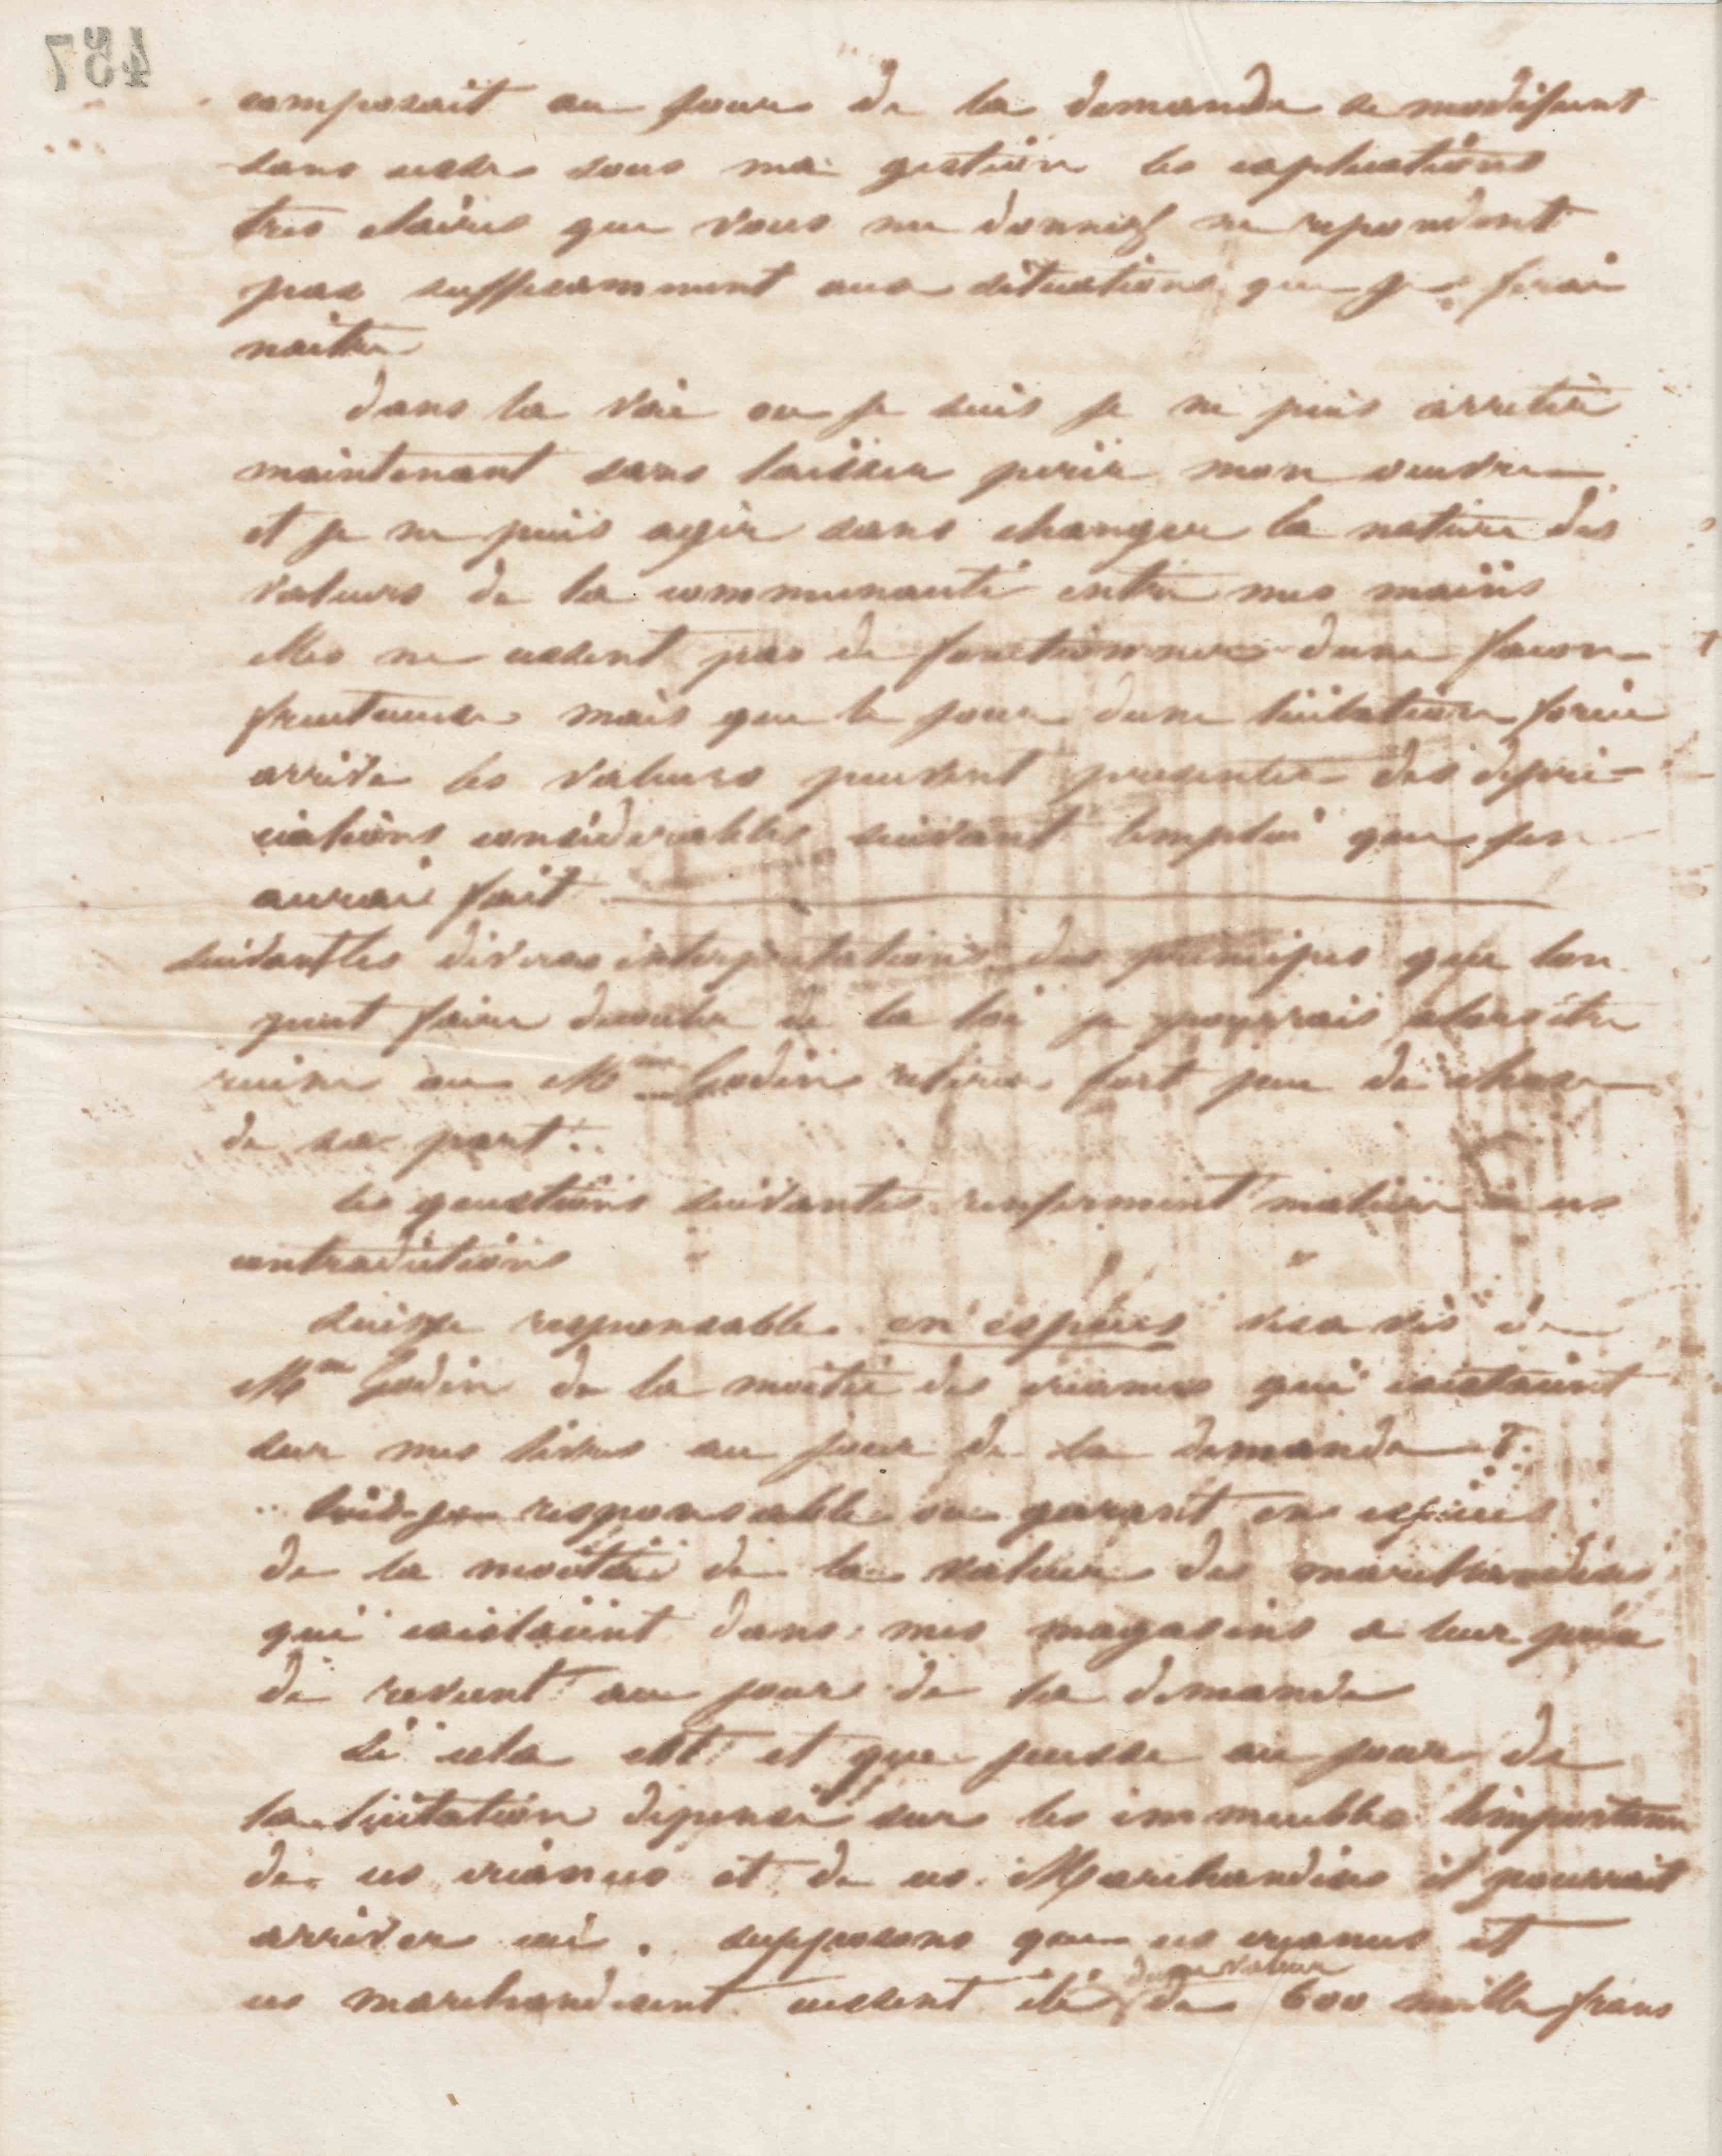 457
composait au jour de la demande se modifiant
sans cesse sous ma gestion les explications
tres claires que vous me donniez ne repondent
pas suffisamment aux situations que je ferai
naitre
dans la voie ou je suis je ne puis arreter
maintenant sans laisser perir mon oeuvre
et je ne puis agir sans changer la nature des
valeurs de la communauté entre mes mains
elles ne cessent pas de fonctionner dune facon
fructueuse mais que le jour dune licitation forcée
arrive les valeurs peuvent presenter des depré-
ciations considerables suivant lemploi que jen
aurai fait
suivant les diverses interpretations des principes que lon
peut faire decouler de la loi je pourrais alors être
ruiné ou Mme Godin retirer fort peu de chose
de sa part.
les questions suivantes renferment matiere à ces
contradictions
suis je responsable en espèces vis a vis de
Mme Godin de la moitié des créances qui existaient
sur mes livres au jour de la demande ?
suis-je responsable ou garant en espèces
de la moitié de la valeur des marchandises
qui existaient dans mes magasins a leur prix
de revient au jour de la demande
Si cela est et que jeusse au jour de
la licitation dépensé sur les immeubles limportance
de ces créances et de ces Marchandises il pourrait
arriver ceci . supposons que ces creances et
ces marchandisent eussent été de 600 mille francs